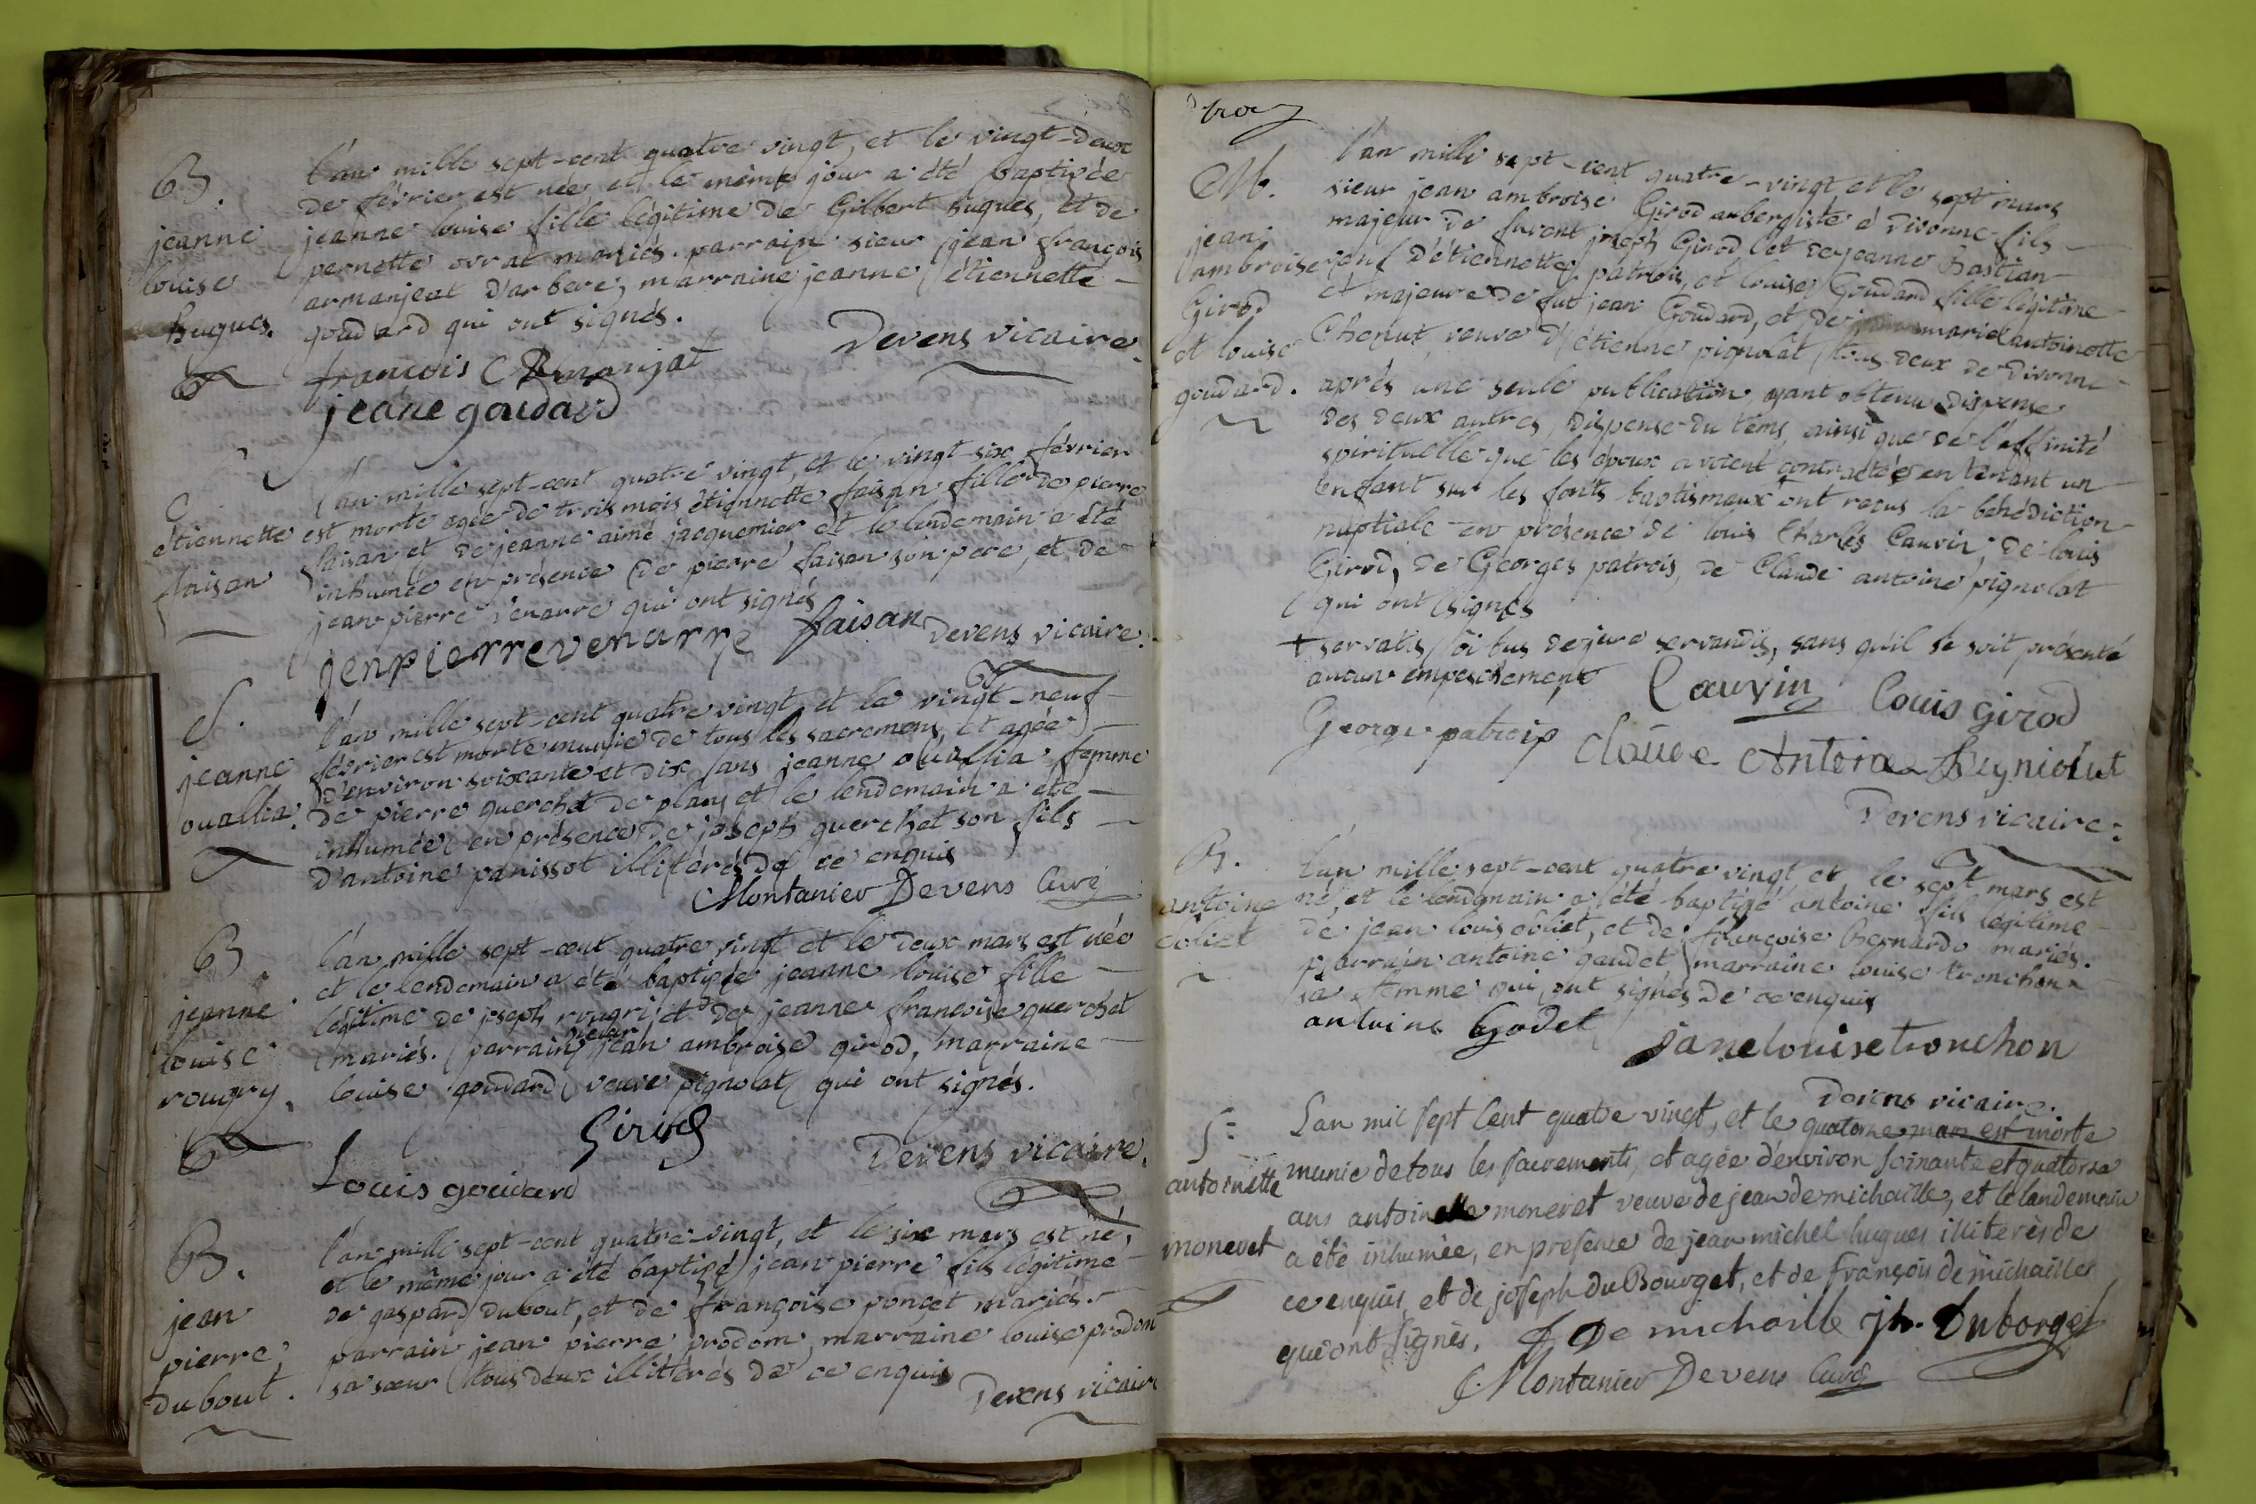 B.
jeanne
louise
hugues.
l'an mille sept-cent quatre vingt, et le vingt-deux
de février est née et le même jour a été baptisée
jeanne louise fille légitime de Gilbert hugues, et de
pernette ovrat mariés. parrain sieur jean françois
armanjeat d'arbere, marraine jeanne étiennette
goudard qui ont signés.
Devens vicaire.
francois Armanjat
jeane goudard
étiennette
faisan
l'an mille sept-cent quatre vingt, et le vingt-six février
est morte agée de trois mois étiennette faisan fille de pierre
faisan et de jeanne aimé jacquemier et le lendemain a été
inhumée en présence de pierre faisan son pere, et de
jean pierre venarre qui ont signés
jenpierrevenarre faisan Devens vicaire.
S.
jeanne
ouallia.
l'an mille sept-cent quatre vingt, et le vingt-neuf
février est morte munie de tous les sacremens, et agée
d'environ soixante et dix ans jeanne ouallia femme
de pierre querchet de plans et le lendemain a été
inhumée en présence de joseph querchet son fils
d'antoine panissot illitérés de ce enquis
Montanier Devens Curé
B.
jeanne
louise
rougry.
l'an mille sept-cent quatre vingt et le deux mars est née
et le lendemain a été baptisée jeanne louise fille
légitime de joseph rougri et de jeanne françoise querchet
mariés. parrain sieur jean ambroise girod, marraine
louise goudard veuve pignolat qui ont signés.
Girod
Louis goudard
Devens vicaire.
B.
jean
pierre
dubout.
l'an mille sept-cent quatre-vingt, et le six mars est né,
et le même jour a été baptisé jean pierre fils légitime
de gaspard dubout, et de françoise ponçet mariés.
parrain jean pierre prodom, marraine louise prodom
sa sœur tous deux illitérés de ce enquis
Devens vicaire
M.
jean
ambroise
Girod
et louise
goudard.
l'an mille sept-cent quatre-vingt et le sept mars
sieur jean ambroise Girod aubergiste à divonne fils
majeur de furent joseph Girod, et de jeanne Bastian
veuf d'étiennette patrois, et louise Goudard fille légitime
et majeure de fut jean Goudard, et de marie antoinette
Chenut, veuve d'étienne pignolat tous deux de divonne
après une seule publication, ayant obtenu dispense
des deux autres, dispense du têms, ainsi que de l'affinité
spirituelle que les époux avoient contractée en tenant un
enfant sur les fonts baptismaux + ont reçus la bénédiction
nuptiale en présence de louis Charles Cauvin, de louis
Girod, de Georges patrois, de Claude antoine pignolat
qui ont signés
+ servatis oibus de jure servandis, sans qu'il se soit présenté
aucun empeschement
Cauvin louis girod
George patroip Claude Antoine
Devens vicaire.
B.
antoine
coliet
L'an mille sept-cent quatre vingt et le sept mars est
né, et le lendemain a été baptisé antoine fils légitime
de jean louis coliet, et de françoise Bernardo mariés.
parrain antoine gaudet marraine louise tronchon
sa femme qui ont signés de ce enquis
antoine Godet
janelouisetronchon
Devens vicaire.
S.
antoinette
moneret
L'an mil sept cent quatre vingt, et le quatorze mars est morte
munie de tous les sacrements, et agée d'environ soixante et quatorze
ans antoinette moneret veuve de jean de michaille, et le landemain
a été inhumée, en presence de jean michel hugues illiterès de
ce enquis, et de joseph du Bourget, et de françois de michailles
qui ont signès. f De michaille jh. Duborget
Montanier Devens Curé